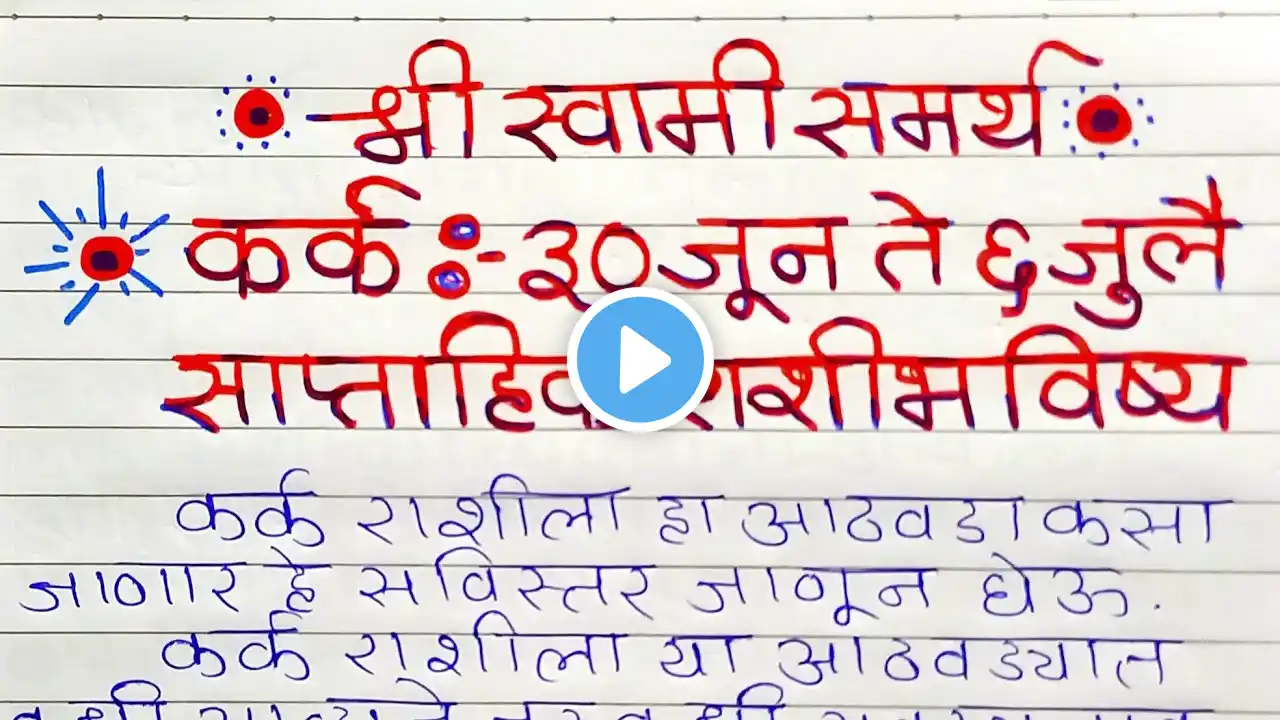 श्री स्वामी समर्थ
कर्क :- ३० जून ते ६ जुलै
साप्ताहिक राशीभविष्य
कर्क राशीला हा आठवडा कसा
जाणार हे सविस्तर जाणून घेऊ.
कर्क राशीला या आठवड्यात